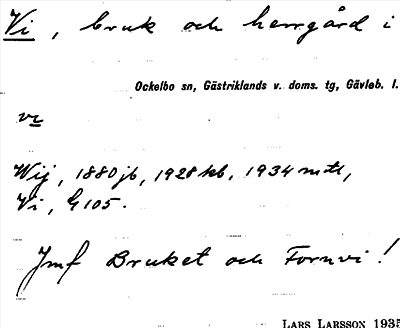 Vi, bruk och herrgård i
Ockelbo sn, Gästriklands v. doms. tg, Gävleb. l.
vi
Wij, 1880 jb, 1928 kb, 1934 mtl,
Vi, G 105.
Jmf Bruket och Fornvi!
LARS LARSSON 1935